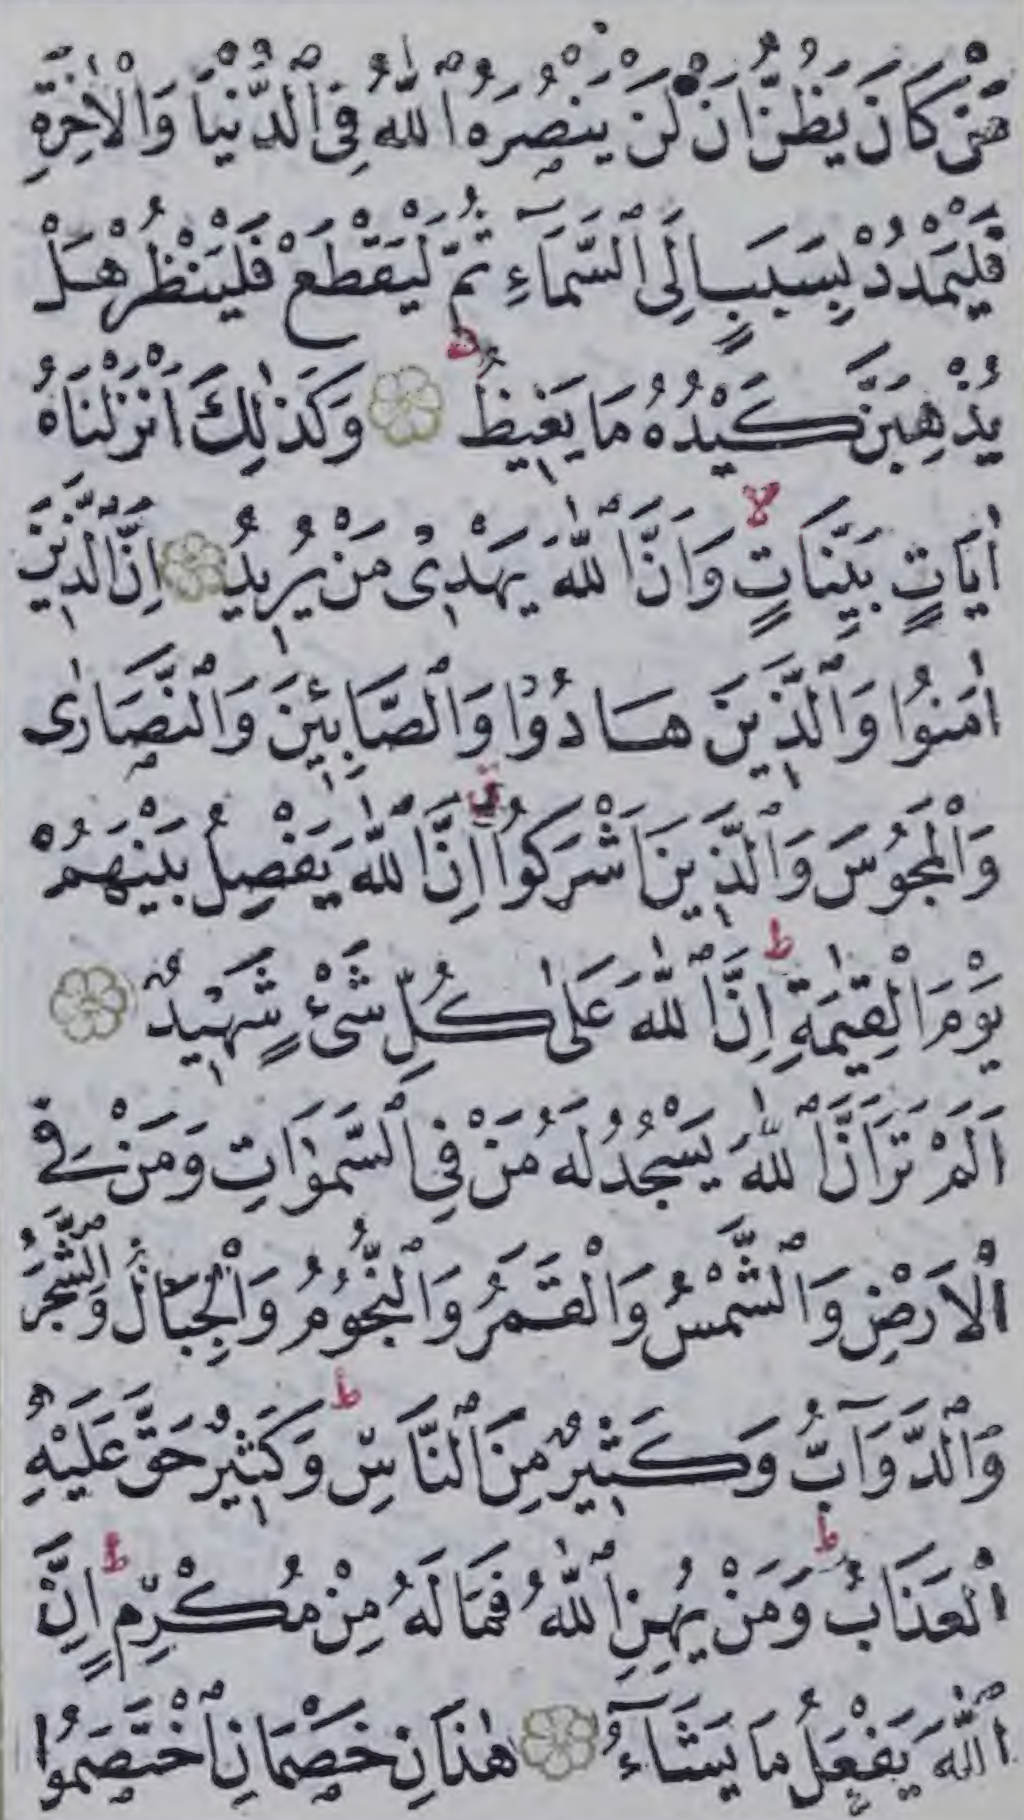 مَنْ كَانَ يَظُنُّ اَنْ لَنْ يَنْصُرَهُ ٱللّٰهُ فِى ٱلدُّنْيَا وَالْاٰخِرَةِ
فَلْيَمْدُدْ بِسَبَبٍ اِلَى ٱلسَّمَٓاءِ ثُمَّ لْيَقْطَعْ فَلْيَنْظُرْ هَلْ
يُذْهِبَنَّ كَيْدُهُ مَا يَغِيظُ وَكَذٰلِكَ اَنْزَلْنَاهُ
اٰيَاتٍ بَيِّنَاتٍ لا وَاَنَّ ٱللّٰهَ يَهْدِى مَنْ يُرِيدُ اِنَّ ٱلَّذِينَ
اٰمَنُوا وَٱلَّذِينَ هَادُوا وَٱلصَّابِئِينَ وَٱلنَّصَارٰى
وَٱلْمَجُوسَ وَٱلَّذِينَ اَشْرَكُوا ق اِنَّ ٱللّٰهَ يَفْصِلُ بَيْنَهُمْ
يَوْمَ الْقِيٰمَةِ ط اِنَّ ٱللّٰهَ عَلٰى كُلِّ شَىْءٍ شَهِيدٌ
اَلَمْ تَرَ اَنَّ ٱللّٰهَ يَسْجُدُ لَهُ مَنْ فِى ٱلسَّمٰوَاتِ وَمَنْ فِى
الْاَرْضِ وَٱلشَّمْسُ وَالْقَمَرُ وَٱلنُّجُومُ وَالْجِبَالُ وَٱلشَّجَرُ
وَٱلدَّوَآبُّ وَكَثِيرٌ مِنَ ٱلنَّاسِ ط وَكَثِيرٌ حَقَّ عَلَيْهِ
الْعَذَابُ ط وَمَنْ يُهِنِ ٱللّٰهُ فَمَا لَهُ مِنْ مُكْرِمٍ ط اِنَّ
ٱللّٰهَ يَفْعَلُ مَا يَشَٓاءُ هٰذَانِ خَصْمَانِ ٱخْتَصَمُوا